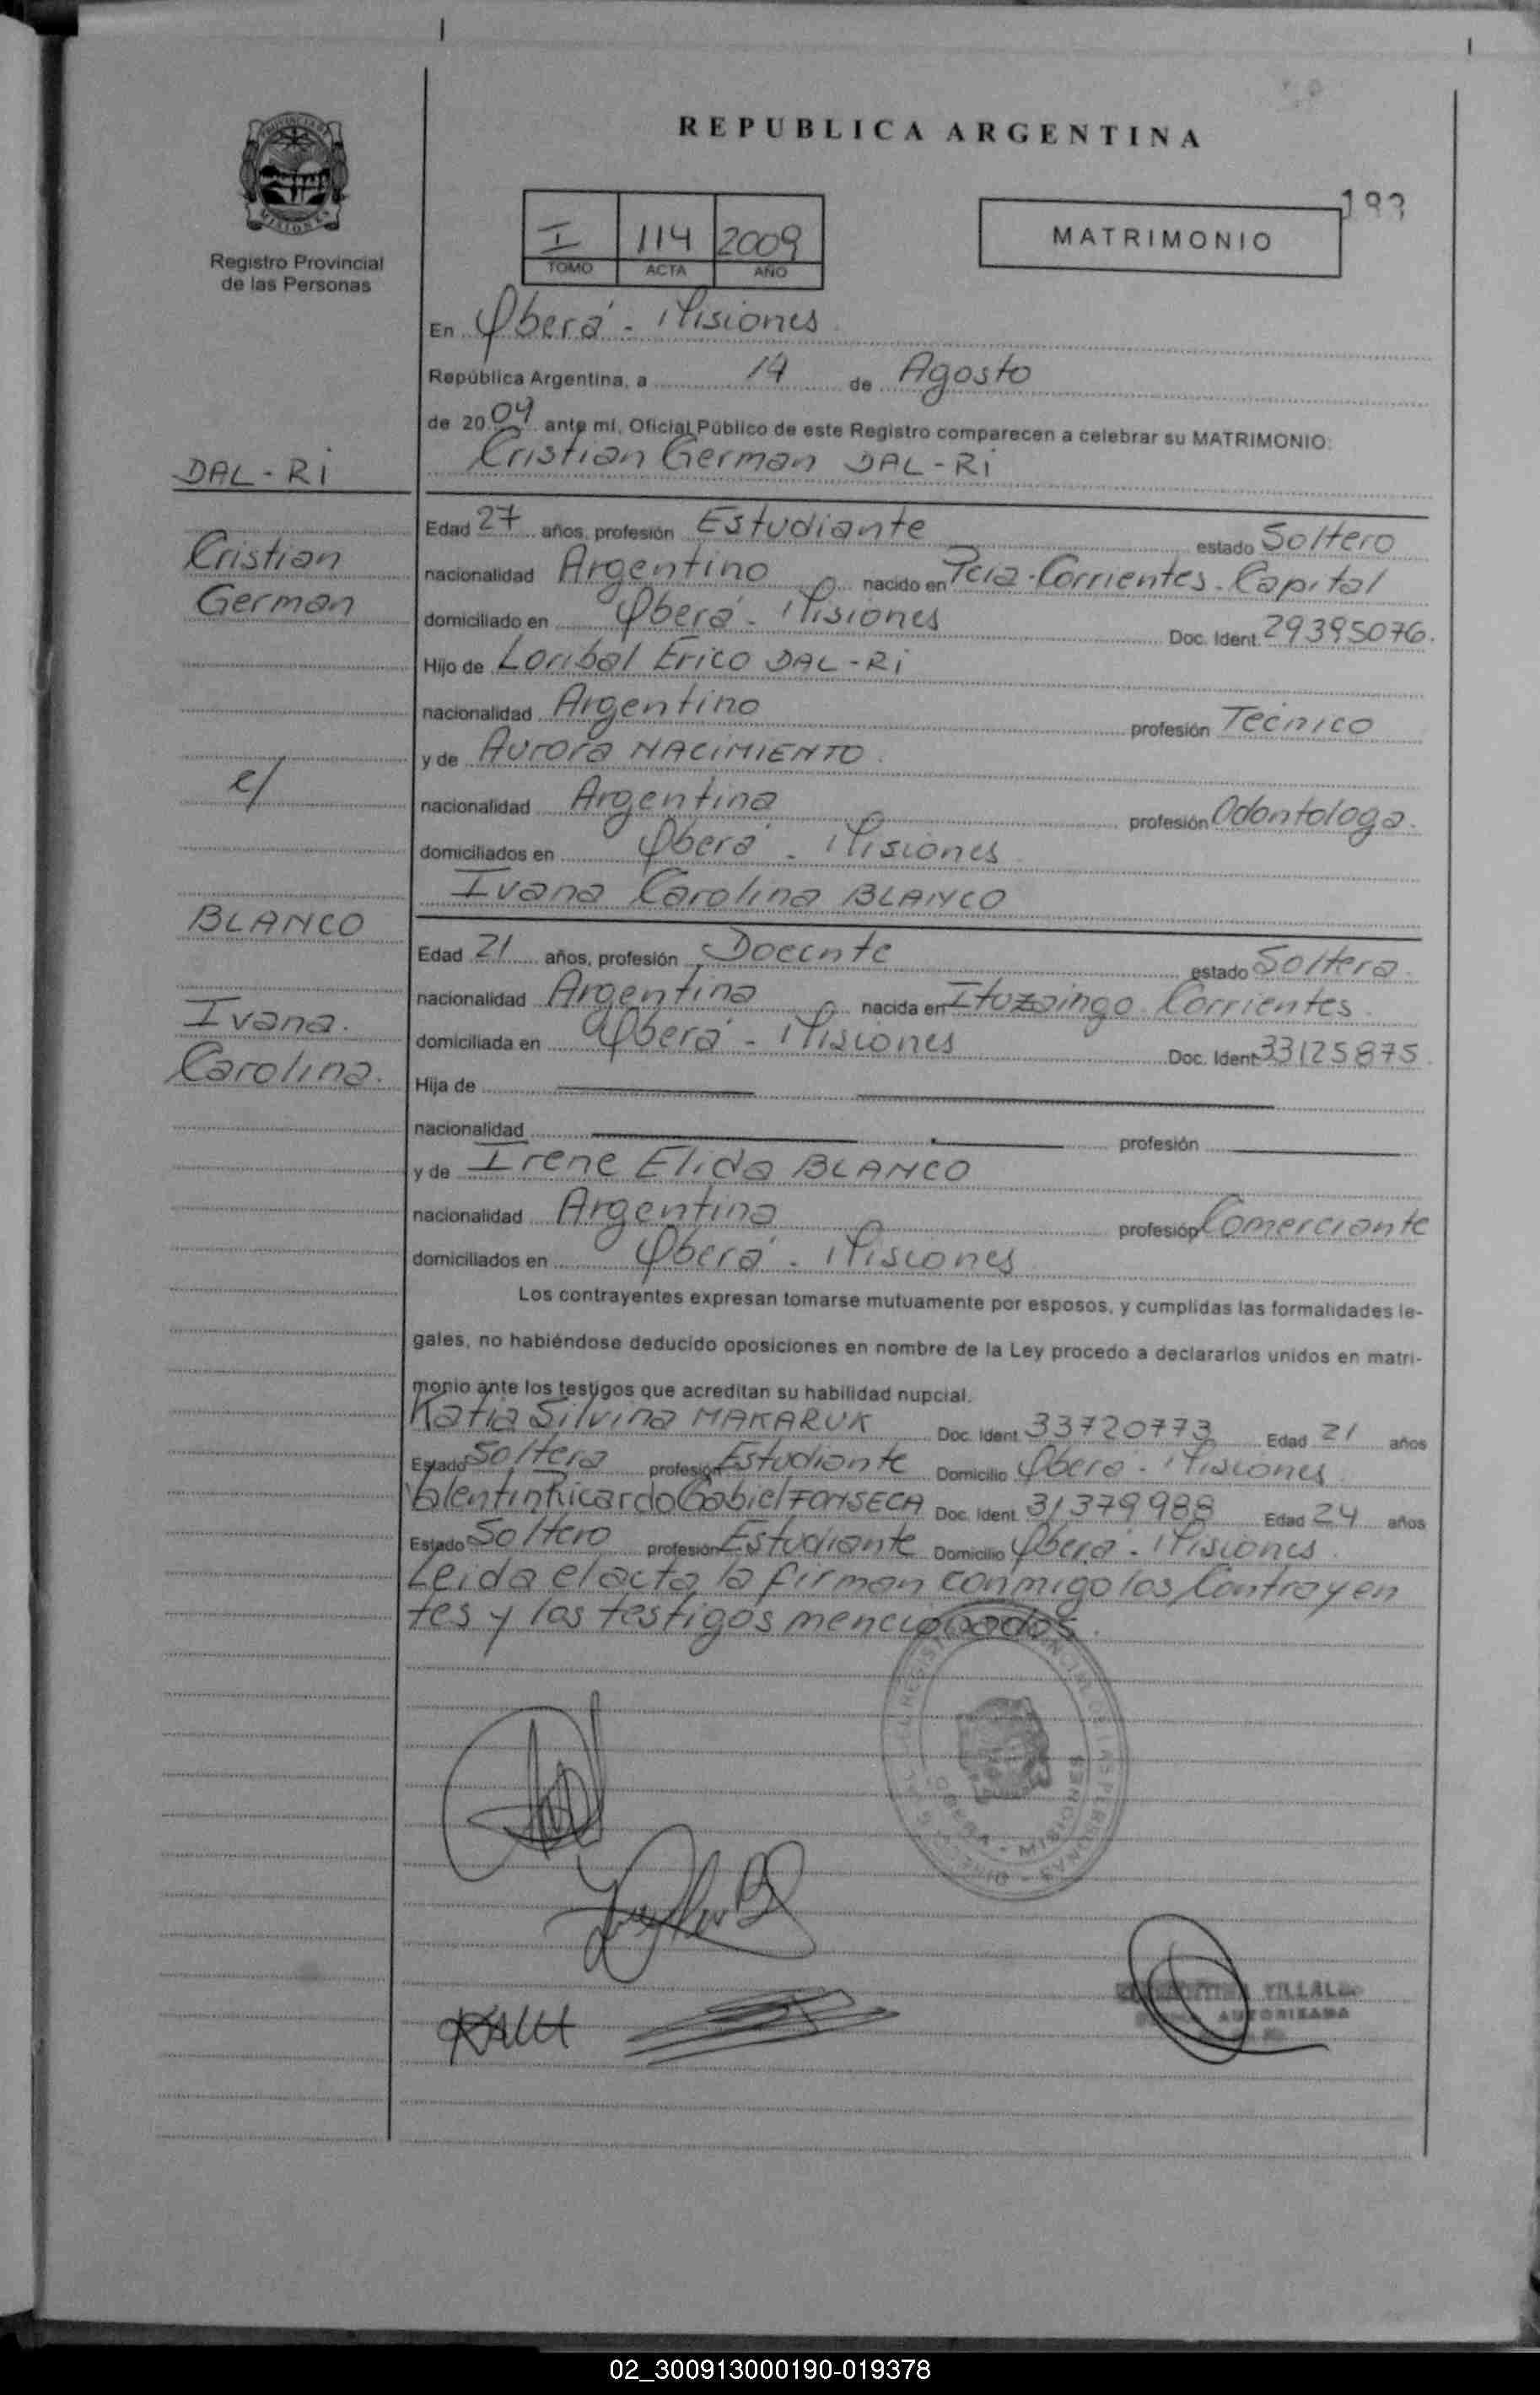 REPUBLICA ARGENTINA
193
PROVINCIA DE
MISIONES
Registro Provincial
de las Personas
I 114 2009
TOMO ACTA AÑO
MATRIMONIO
En Oberá - Misiones
República Argentina, a 14 de Agosto
de 2009 ante mí, Oficial Público de este Registro comparecen a celebrar su MATRIMONIO:
Cristian German DAL-Ri
DAL-Ri
Cristian
German
c/
BLANCO
Ivana.
Carolina.
Edad 27 años, profesión Estudiante estado Soltero
nacionalidad Argentino nacido en Pcia-Corrientes-Capital
domiciliado en Oberá - Misiones Doc. Ident. 29395076.
Hijo de Loribal Erico DAL-Ri
nacionalidad Argentino profesión Tecnico
y de Aurora NACIMIENTO.
nacionalidad Argentina profesión Odontologa.
domiciliados en Oberá - Misiones
Ivana Carolina BLANCO
Edad 21 años, profesión Docente estado Soltera.
nacionalidad Argentina nacida en Ituzaingo. Corrientes.
domiciliada en Oberá - Misiones Doc. Ident 33125875.
Hija de
nacionalidad profesión
y de Irene Elida BLANCO
nacionalidad Argentina profesión Comerciante
domiciliados en Oberá - Misiones
Los contrayentes expresan tomarse mutuamente por esposos, y cumplidas las formalidades le-
gales, no habiéndose deducido oposiciones en nombre de la Ley procedo a declararlos unidos en matri-
monio ante los testigos que acreditan su habilidad nupcial.
Katia Silvina MAKARUK Doc. Ident. 33720773 Edad 21 años
Estado Soltera profesión Estudiante Domicilio Oberá - Misiones
Valentin Ricardo Gabiel FONSECA Doc. Ident. 31379988 Edad 24 años
Estado Soltero profesión Estudiante Domicilio Oberá - Misiones.
Leida el acta la firman conmigo los Contrayen
tes y los testigos mencionados.
OBERA - MISIONES
VILLALBA
AUTORIZADA
02_300913000190-019378